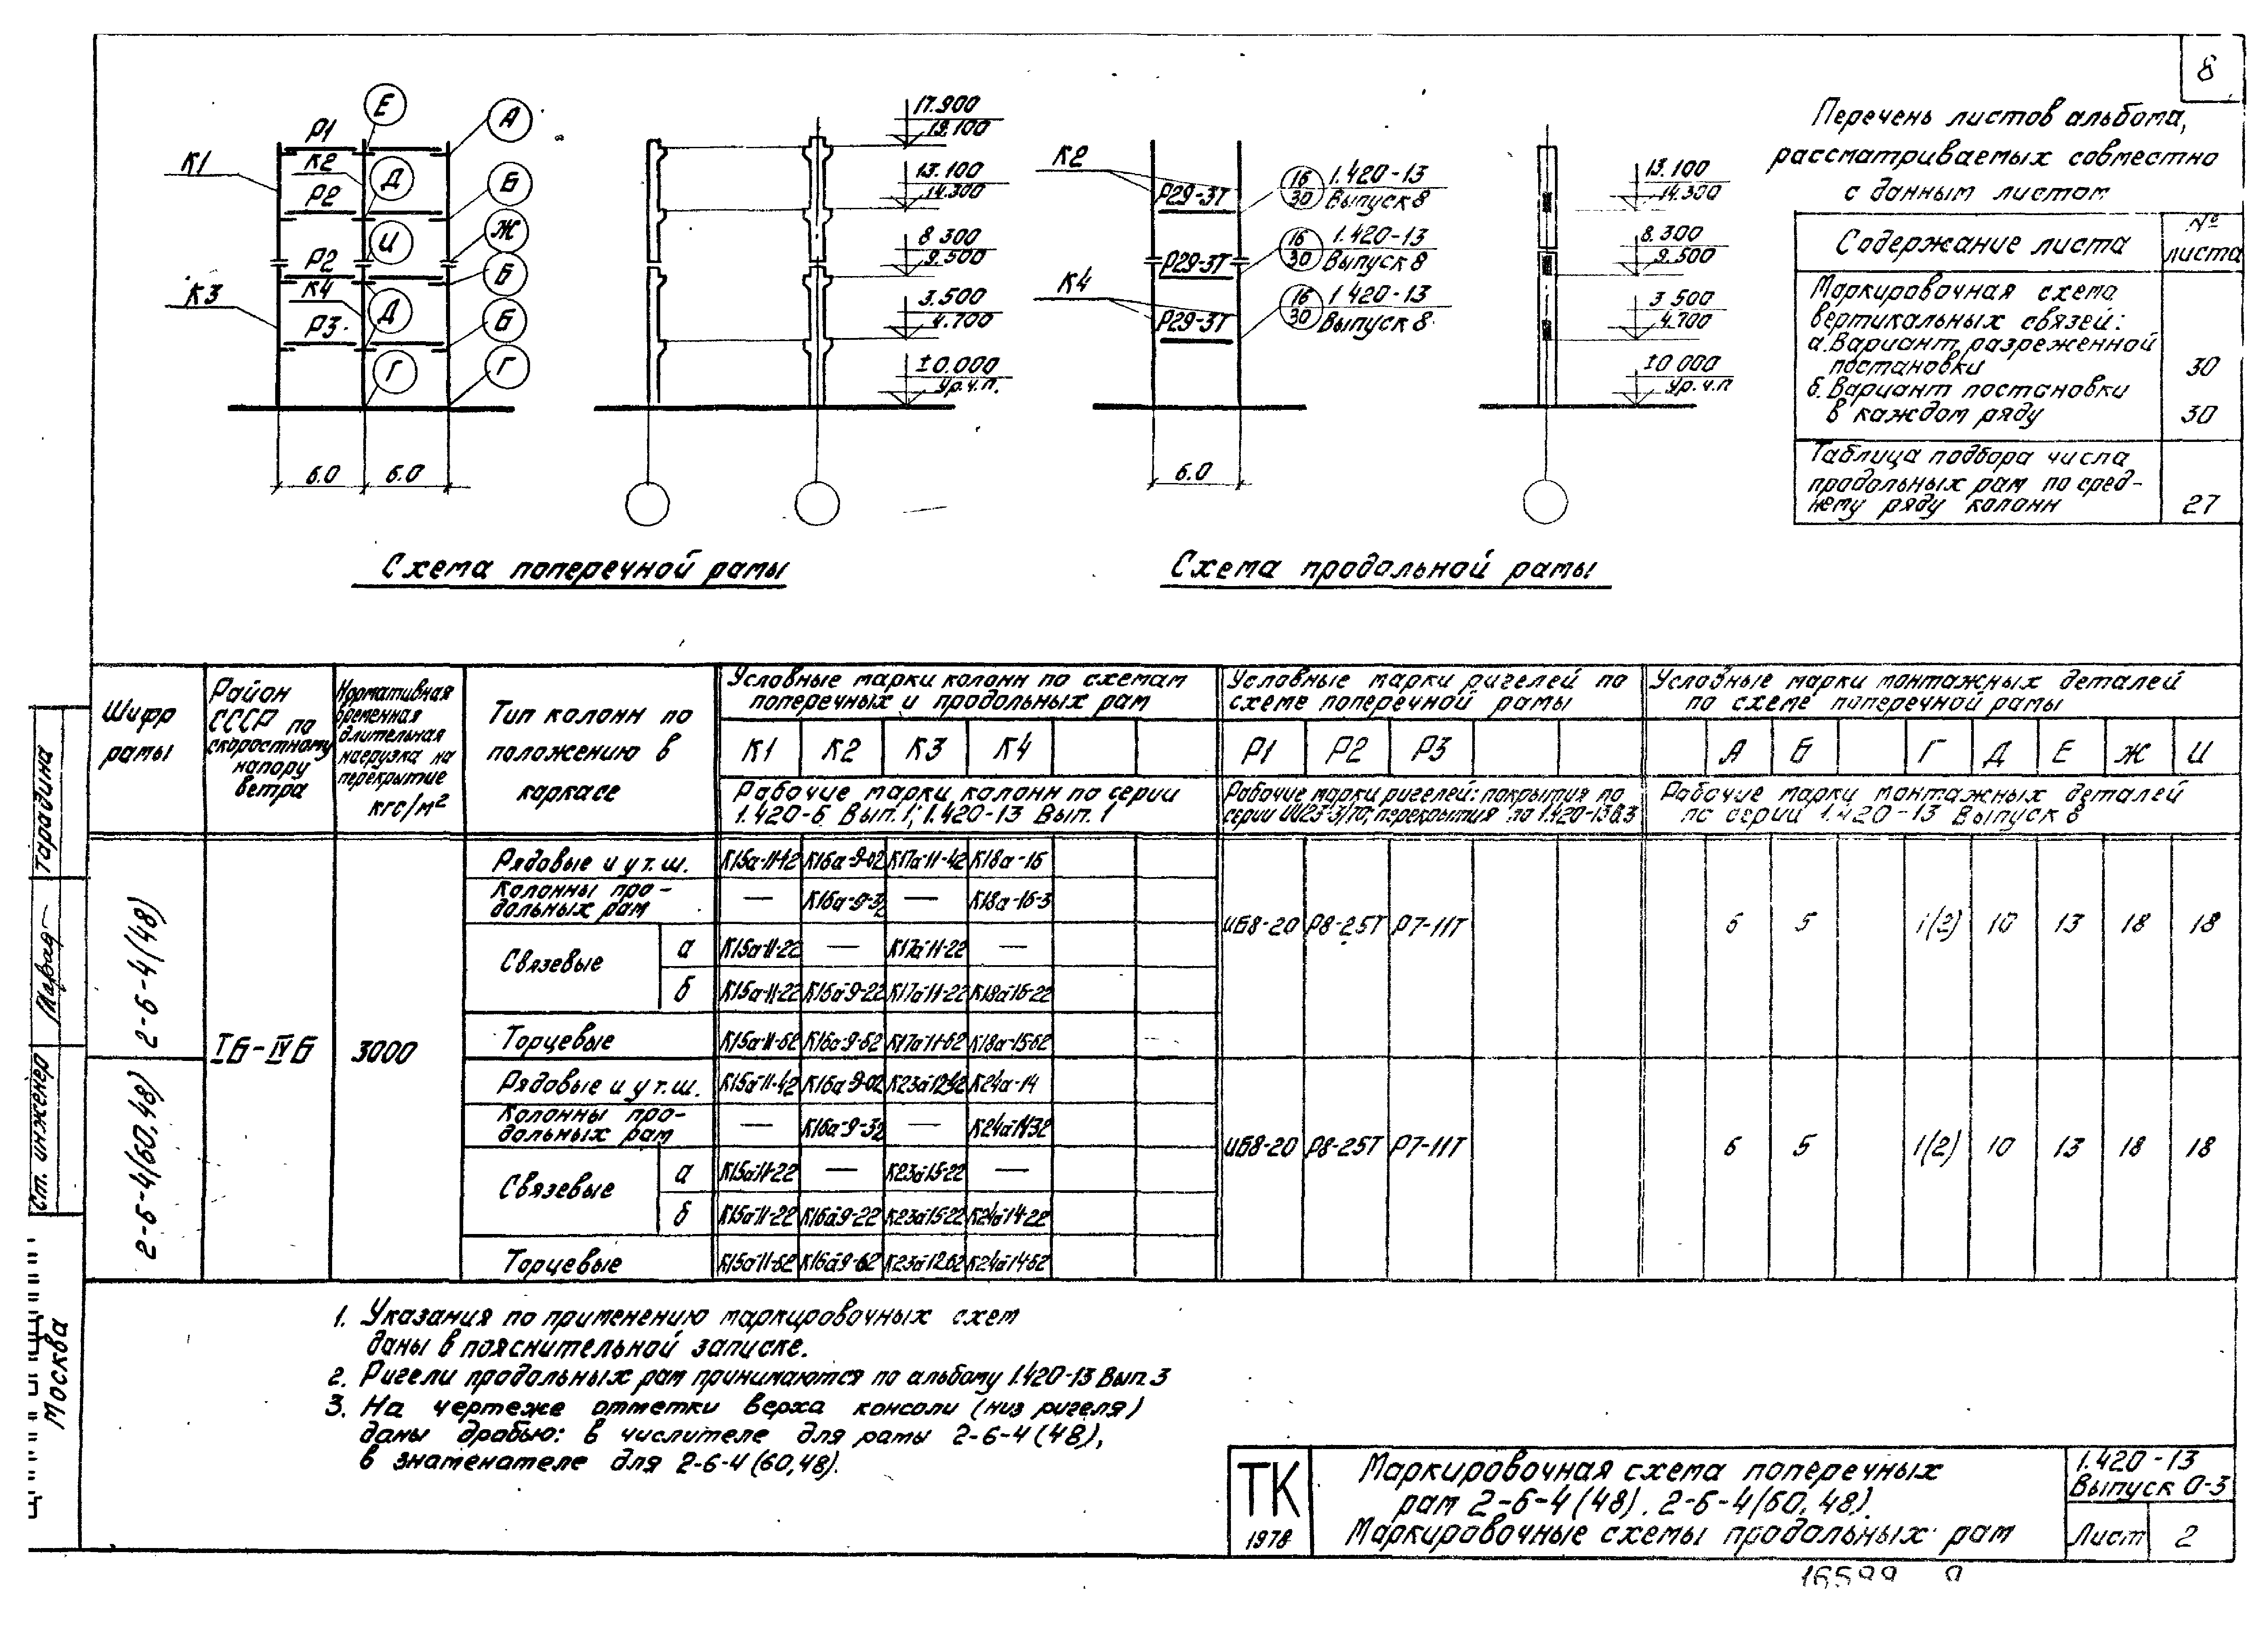 8
Е
А
Р1
К2
К1
Д
Р2
Б
И
Ж
Р2
К4
К3
Б
Д
Р3
Б
Г
Г
6.0
6.0
17.900
19.100
13.100
14.300
8.300
9.500
3.500
4.700
±0.000
Ур.ч.п.
К2
Р29-3Т
16
30
1.420-13
Выпуск 8
Р29-3Т
16
30
1.420-13
Выпуск 8
К4
Р29-3Т
16
30
1 420-13
Выпуск 8
6.0
13.100
14.300
8.300
9.500
3 500
4.700
±0 000
Ур.ч.п
Перечень листов альбома,
рассматриваемых совместно
с данным листом
Содержание листа
№ листа
Маркировочная схема
вертикальных связей:
а. Вариант разреженной
постановки 30
б. Вариант постановки
в каждом ряду 30
Таблица подбора числа
продольных рам по сред-
нему ряду колонн 27
Схема поперечной рамы
Схема продольной рамы
Шифр рамы
Район СССР по скоростному напору ветра
Нормативная временная длительная нагрузка на перекрытие кгс/м²
Тип колонн по положению в каркасе
Условные марки колонн по схемам
поперечных и продольных рам
К1 К2 К3 К4
Рабочие марки колонн по серии
1.420-6 Вып.1; 1.420-13 Вып.1
Условные марки ригелей по
схеме поперечной рамы
Р1 Р2 Р3
Рабочие марки ригелей: покрытия по
серии ИИ23-3/70; перекрытия по 1.420-13 В.3
Условные марки монтажных деталей
по схеме поперечной рамы
А Б Г Д Е Ж И
Рабочие марки монтажных деталей
по серии 1.420-13 Выпуск 8
2-6-4(48)
2-6-4(60,48)
Iб-IVб
3000
Рядовые и у т.ш. К15а-11-42 К16а-9-02 К17а-11-42 К18а-16
Колонны про-
дольных рам — К16а-9-32 — К18а-16-3
Связевые
а К15а-11-22 — К17а-11-22 —
б К15а-11-22 К16а-9-22 К17а-11-22 К18а-16-22
Торцевые К15а-11-62 К16а-9-62 К17а-11-62 К18а-15-62
ИБ8-20 Р8-25Т Р7-11Т
6 5 1(2) 10 13 18 18
Рядовые и у т.ш. К15а-11-42 К16а-9-02 К23а-12-42 К24а-14
Колонны про-
дольных рам — К16а-9-32 — К24а-14-32
Связевые
а К15а-11-22 — К23а-15-22 —
б К15а-11-22 К16а-9-22 К23а-15-22 К24а-14-22
Торцевые К15а-11-62 К16а-9-62 К23а-12-62 К24а-14-62
ИБ8-20 Р8-25Т Р7-11Т
6 5 1(2) 10 13 18 18
1. Указания по применению маркировочных схем
даны в пояснительной записке.
2. Ригели продольных рам принимаются по альбому 1.420-13 Вып. 3
3. На чертеже отметки верха консоли (низ ригеля)
даны дробью: в числителе для рамы 2-6-4(48),
в знаменателе для 2-6-4(60,48).
Тарадина
Ст. инженер
Москва
ТК
1978
Маркировочная схема поперечных
рам 2-6-4(48). 2-6-4(60,48).
Маркировочные схемы продольных рам
1.420-13
Выпуск 0-3
Лист 2
16599 9